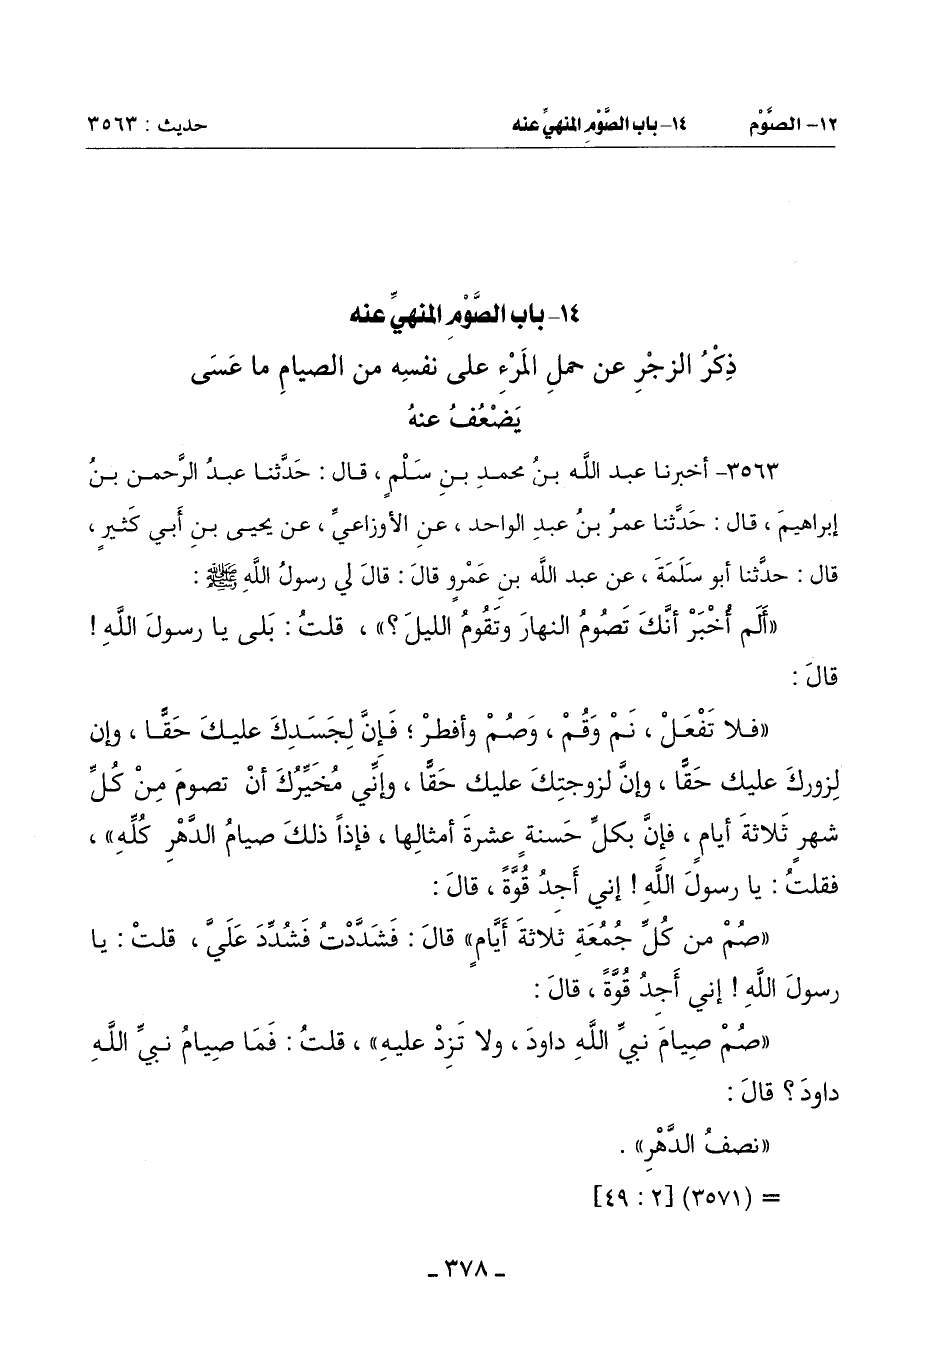 ١٢- الصَّوْم ١٤- باب الصَّوْمِ المنهيِّ عنه حديث : ٣٥٦٣
١٤- باب الصَّوْمِ المنهيِّ عنه
ذِكْرُ الزجْرِ عن حملِ المَرْءِ على نفسِه من الصيامِ ما عَسَى
يَضْعُفُ عنهُ
٣٥٦٣- أخبرنا عبد اللَّه بنُ محمدِ بنِ سَلْمٍ ، قال : حَدَّثنا عبدُ الرَّحمن بنُ
إبراهيمَ ، قال : حَدَّثنا عمرُ بنُ عبدِ الواحد ، عنِ الأوزاعيِّ ، عن يحيى بنِ أبي كَثيرٍ ،
قال : حدَّثنا أبو سَلَمَةَ ، عن عبد اللَّه بنِ عَمْرٍو قالَ : قالَ لي رسولُ اللَّهِ ﷺ :
«أَلَم أُخْبَرْ أنَّكَ تَصُومُ النهارَ وتَقُومُ الليلَ؟» ، قلتُ : بَلى يا رسولَ اللَّهِ !
قالَ :
«فلا تَفْعَلْ ، نَمْ وَقُمْ ، وَصُمْ وأفطرْ ؛ فَإِنَّ لِجَسَدِكَ عليكَ حَقًّا ، وإن
لِزورِكَ عليك حَقًّا ، وإنَّ لزوجتِكَ عليك حَقًّا ، وإنِّي مُخَيِّرُكَ أنْ تصومَ مِنْ كُلِّ
شهرٍ ثَلاثةَ أيامٍ ، فإنَّ بكلِّ حَسنةٍ عشرةَ أمثالِها ، فإذاً ذلكَ صيامُ الدَّهْرِ كُلِّهِ» ،
فقلتُ : يا رسولَ اللَّهِ ! إني أجِدُ قُوَّةً ، قالَ :
«صُمْ من كُلِّ جُمُعَةٍ ثلاثةَ أَيَّامٍ» قالَ : فَشَدَّدْتُ فَشُدِّدَ عَلَيَّ ، قلتْ : يا
رسولَ اللَّهِ ! إني أَجِدُ قُوَّةً ، قالَ :
«صُمْ صِيامَ نبيِّ اللَّهِ داودَ ، ولا تَزِدْ عليهِ» ، قلتُ : فَمَا صِيامُ نبيِّ اللَّهِ
داودَ ؟ قالَ :
«نصفُ الدَّهْرِ» .
= (٣٥٧١) [٢ : ٤٩]
- ٣٧٨ -